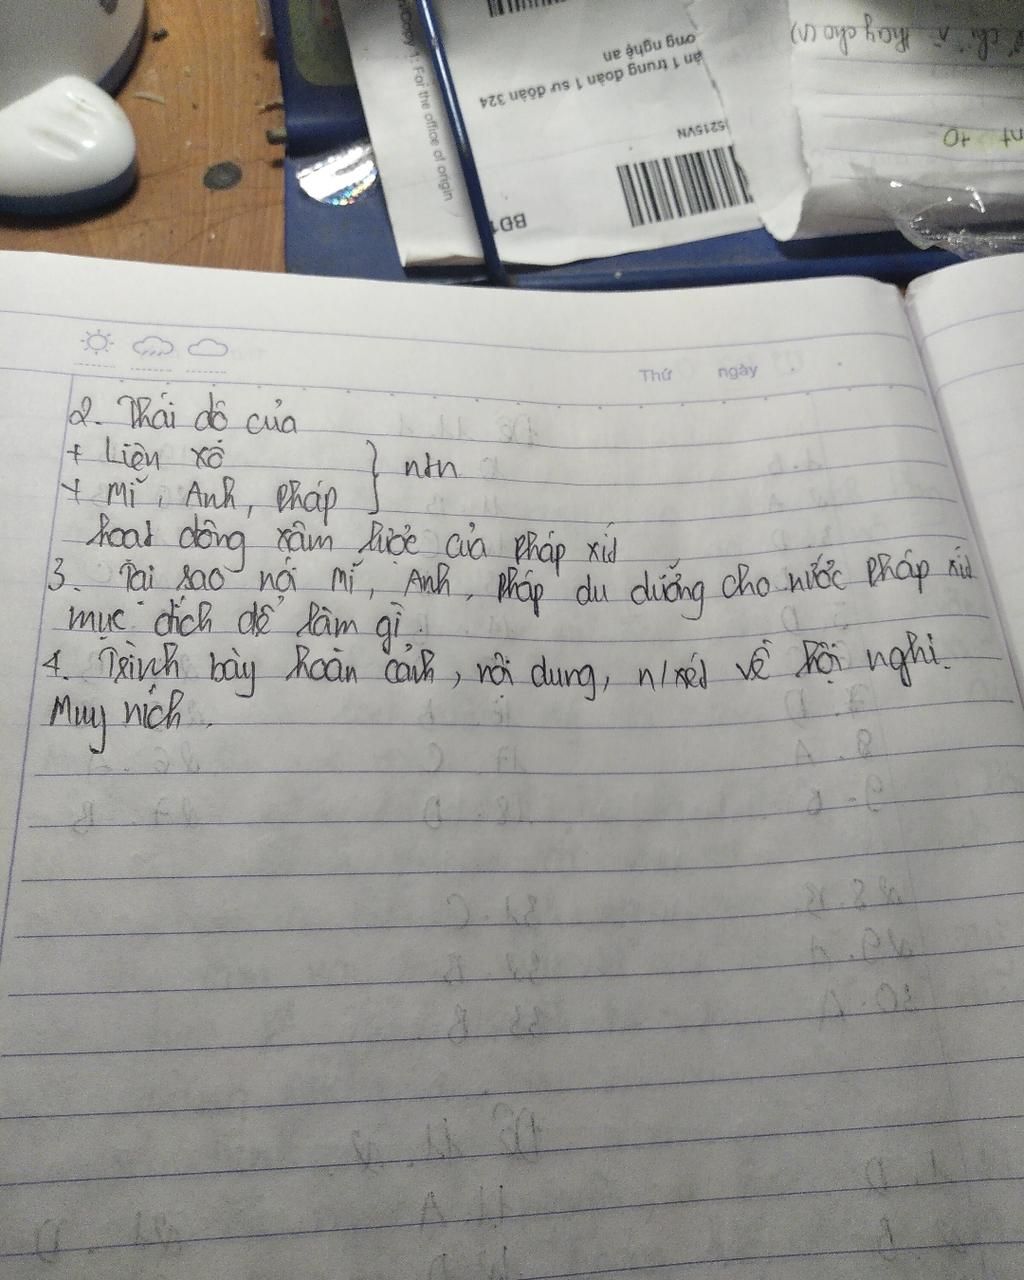 w/Copy 1: For the office of origin
ong nghệ an
án 1 trung đoàn 1 sư đoàn 324
5215VN
BD1
thay cho (v)
Thứ ngày
2. Thái độ của
+ Liên xô
+ Mĩ, Anh, Pháp
} ntn
hoạt động xâm lược của pháp xít
3. Tại sao nói Mĩ, Anh, Pháp du dưỡng cho nước Pháp xít
mục đích để làm gì.
4. Trình bày hoàn cảnh, nội dung, n/xét về hội nghị.
Muy ních.